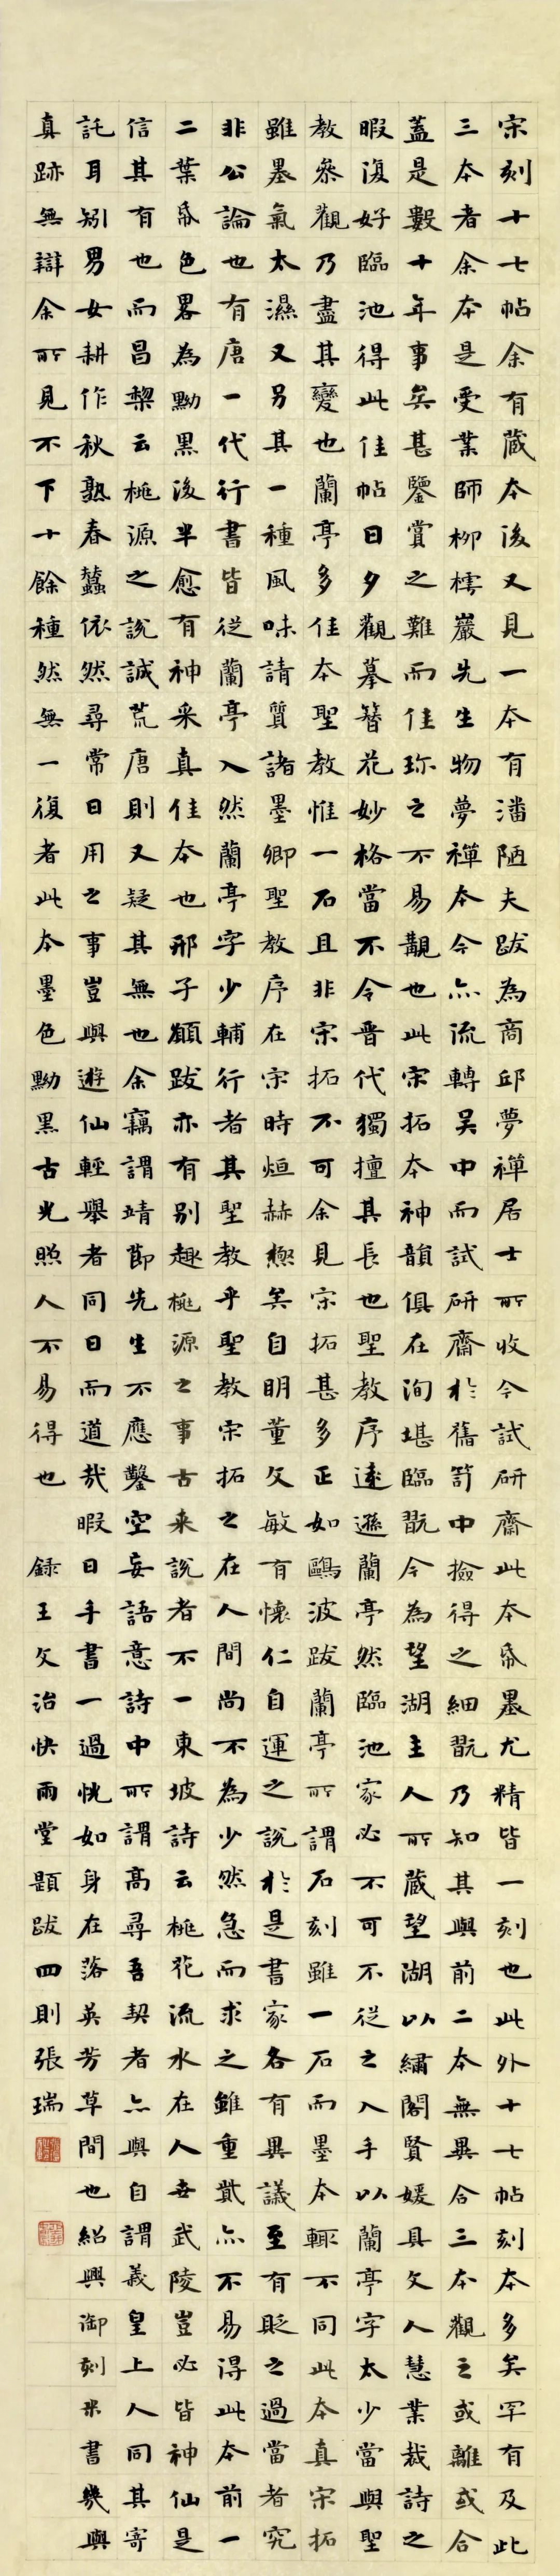 宋刻十七帖余有蔵本後又見一本有潘陋夫跋為商邱夢禪居士所收今試研齋此本帋墨尤精皆一刻也此外十七帖刻本多矣罕有及此
三本者余本是受業師柳樗巖先生物夢禪本今亦流轉吴中而試研齋於舊笥中撿得之細翫乃知其與前二本無異合三本觀之或離或合
蓋是數十年事矣甚鑒賞之難而佳珎之不易觀也此宋拓本神韻俱在洵堪臨翫今為望湖主人所蔵望湖以繡閣賢媛具文人慧業裁詩之
暇復好臨池得此佳帖日夕觀摹簪花妙格當不令晋代獨擅其長也聖教序逺遜蘭亭然臨池家必不可不從之入手以蘭亭字太少當與聖
教叅觀乃盡其變也蘭亭多佳本聖教惟一石且非宋拓不可余見宋拓甚多正如鷗波跋蘭亭所謂石刻雖一石而墨本輒不同此本真宋拓
雖墨氣太濕又另其一種風味請質諸墨卿聖教序在宋時烜赫極矣自明董文敏有懷仁自運之說於是書家各有異議至有貶之過當者究
非公論也有唐一代行書皆從蘭亭入然蘭亭字少輔行者其聖教乎聖教宋拓之在人間尚不為少然急而求之雖重貲亦不易得此本前一
二葉帋色畧為黝黒後半愈有神采真佳本也邢子顧跋亦有别趣桃源之事古来説者不一東坡詩云桃花流水在人世武陵豈必皆神仙是
信其有也而昌黎云桃源之說誠荒唐則又疑其無也余竊謂靖節先生不應鑿空妄語意詩中所謂高尋吾契者亦與自謂義皇上人同其寄
託耳矧男女耕作秋熟春蠶依然尋常日用之事豈與遊仙輕舉者同日而道哉暇日手書一過恍如身在落英芳草間也紹興御刻米書幾與
真跡無辯余所見不下十餘種然無一復者此本墨色黝黒古光照人不易得也　録王文治快雨堂題跋四則張瑞